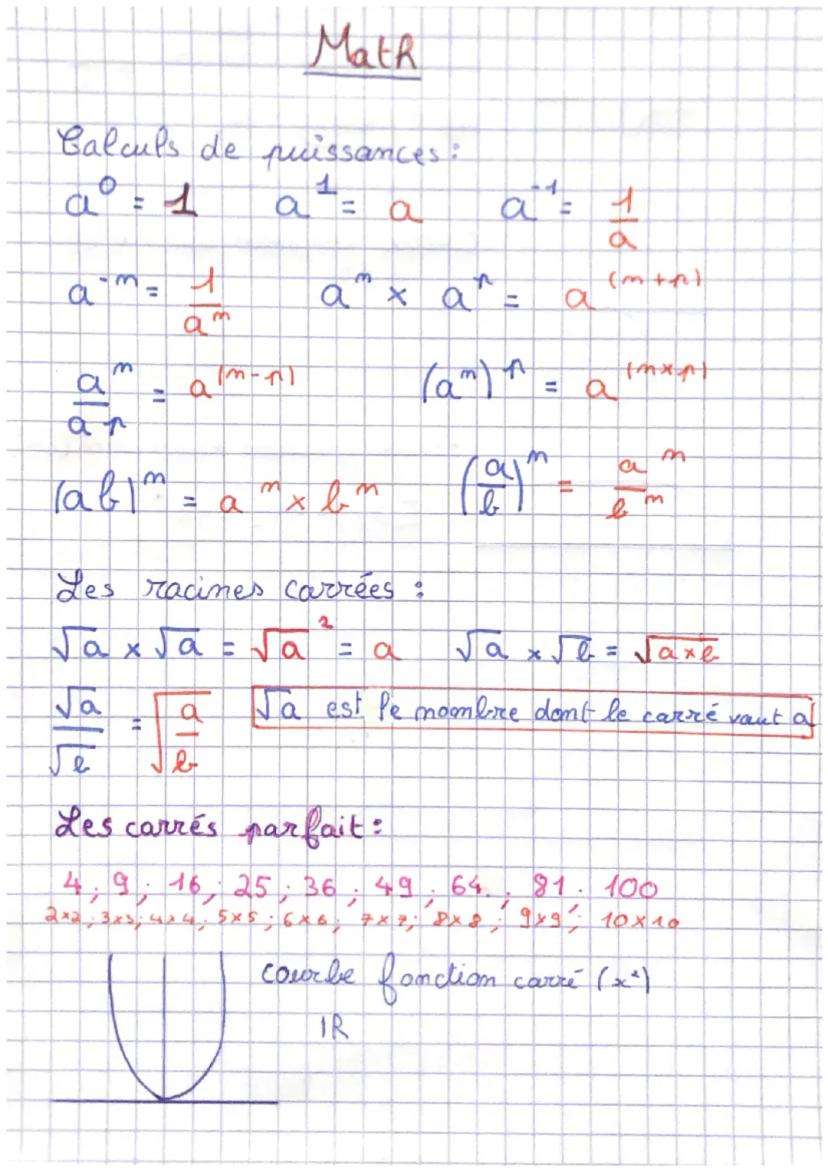 Math
Calculs de puissances :
a⁰ = 1 a¹ = a a⁻¹ = 1/a
a⁻ⁿ = 1/aⁿ aⁿ × aᵖ = a⁽ⁿ⁺ᵖ⁾
aⁿ/aᵖ = a⁽ⁿ⁻ᵖ⁾ (aⁿ)ᵖ = a⁽ⁿˣᵖ⁾
(ab)ⁿ = aⁿ × bⁿ (a/b)ⁿ = aⁿ/bⁿ
Les racines carrées :
√a × √a = √a² = a √a × √b = √(a×b)
√a/√b = √(a/b) √a est le nombre dont le carré vaut a
Les carrés parfait :
4 ; 9 ; 16 ; 25 ; 36 ; 49 ; 64 ; 81 ; 100
2×2 ; 3×3 ; 4×4 ; 5×5 ; 6×6 ; 7×7 ; 8×8 ; 9×9 ; 10×10
courbe fonction carré (x²)
IR